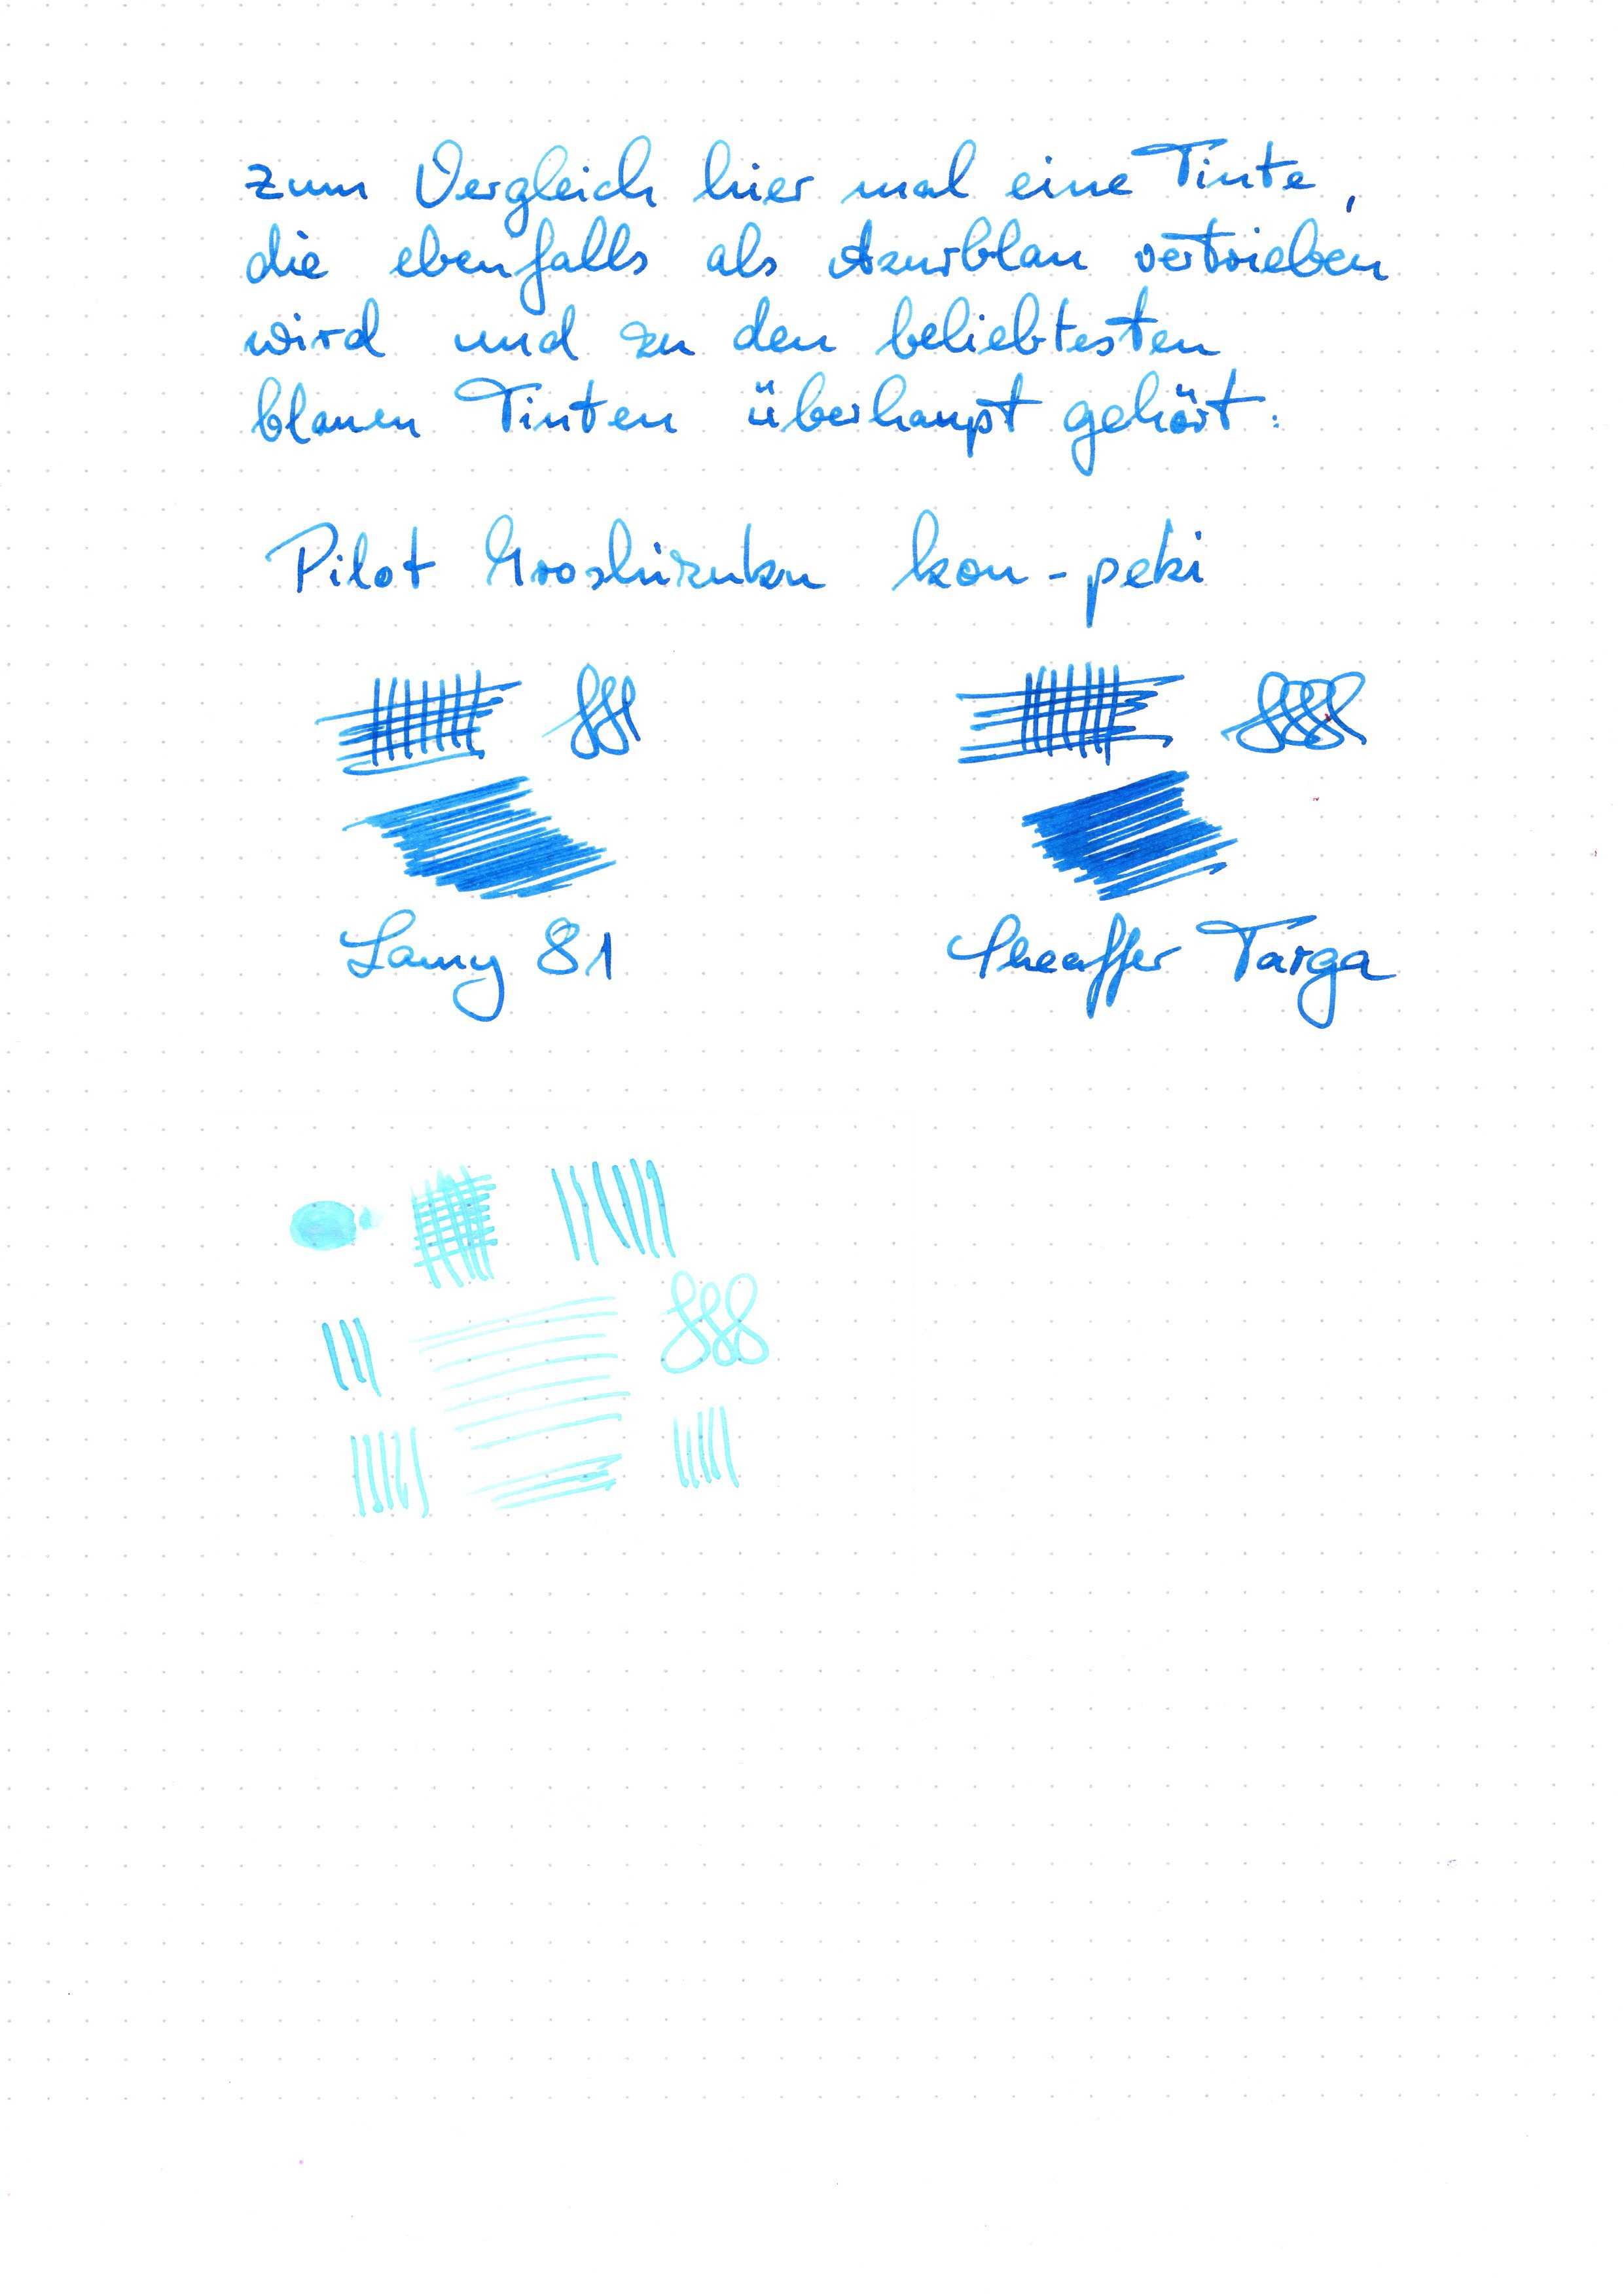 zum Vergleich hier mal eine Tinte,
die ebenfalls als Azurblau vertrieben
wird und zu den beliebtesten
blauen Tinten überhaupt gehört:
Pilot Iroshizuku kon-peki
Lamy 81
Sheaffer Targa